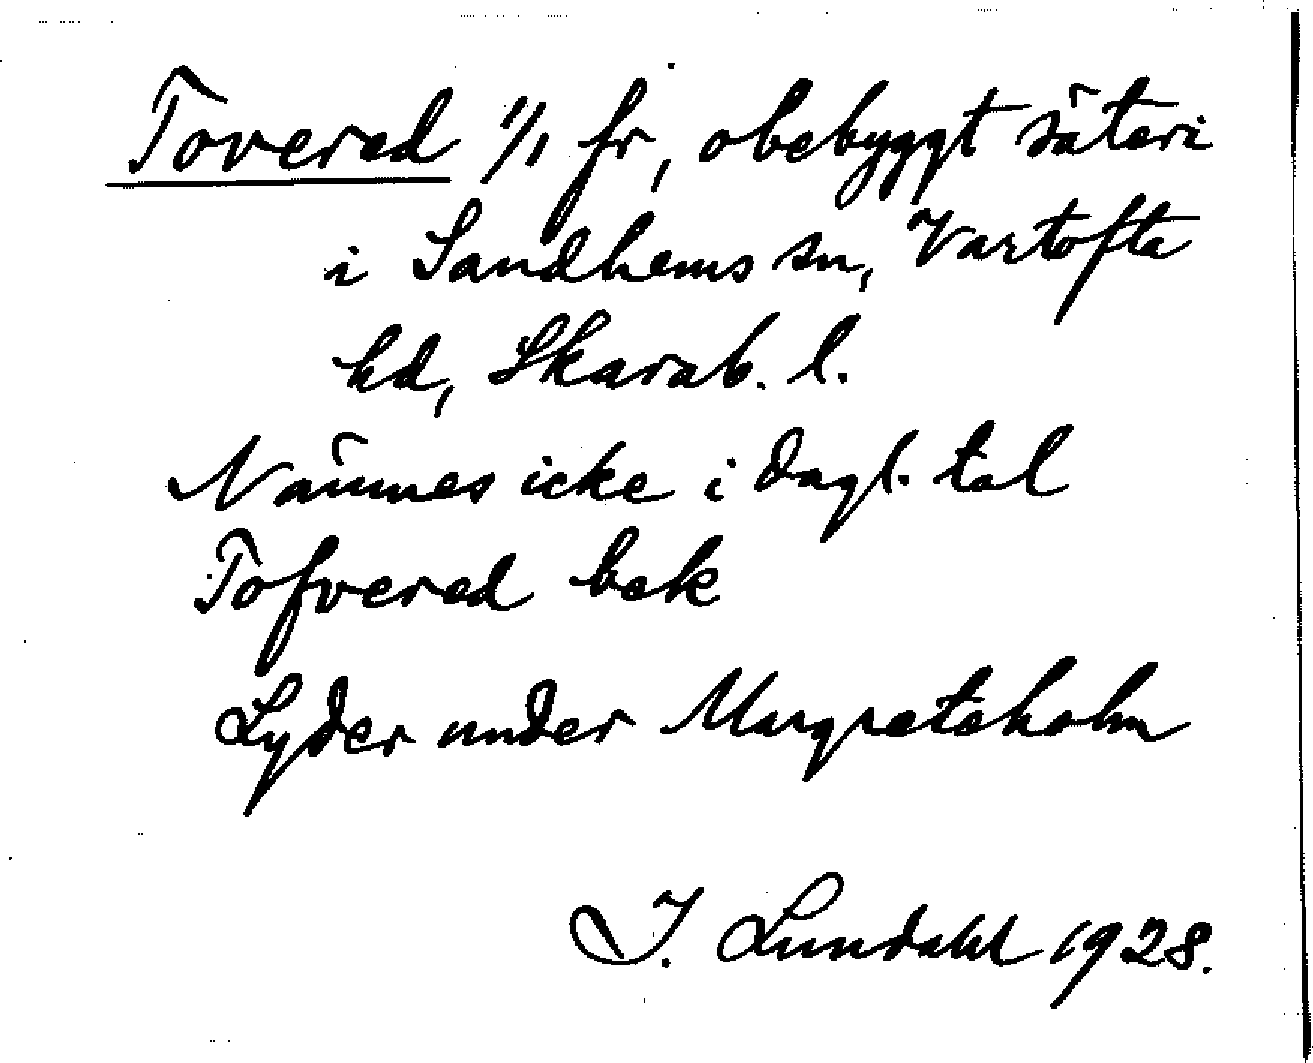 Tovered 1/1 fr, obebyggt säteri
i Sandhems sn, Vartofta
hd, Skarab. l.
Nämnes icke i dagl. tal
Tofvered bok
Lyder under Margreteholm
I. Lundahl 1928.